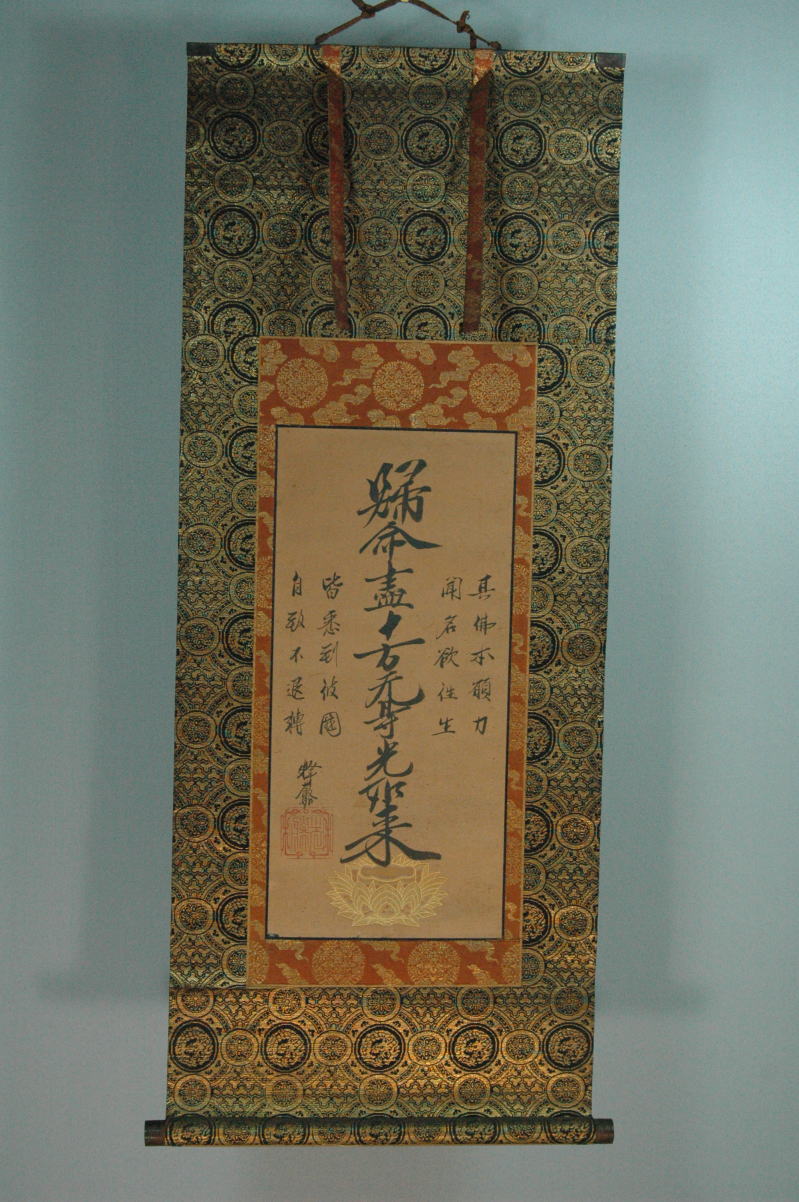 其佛本願力
聞名欲往生
歸命盡十方无㝵光如来
皆悉到彼國
自致不退轉
釋